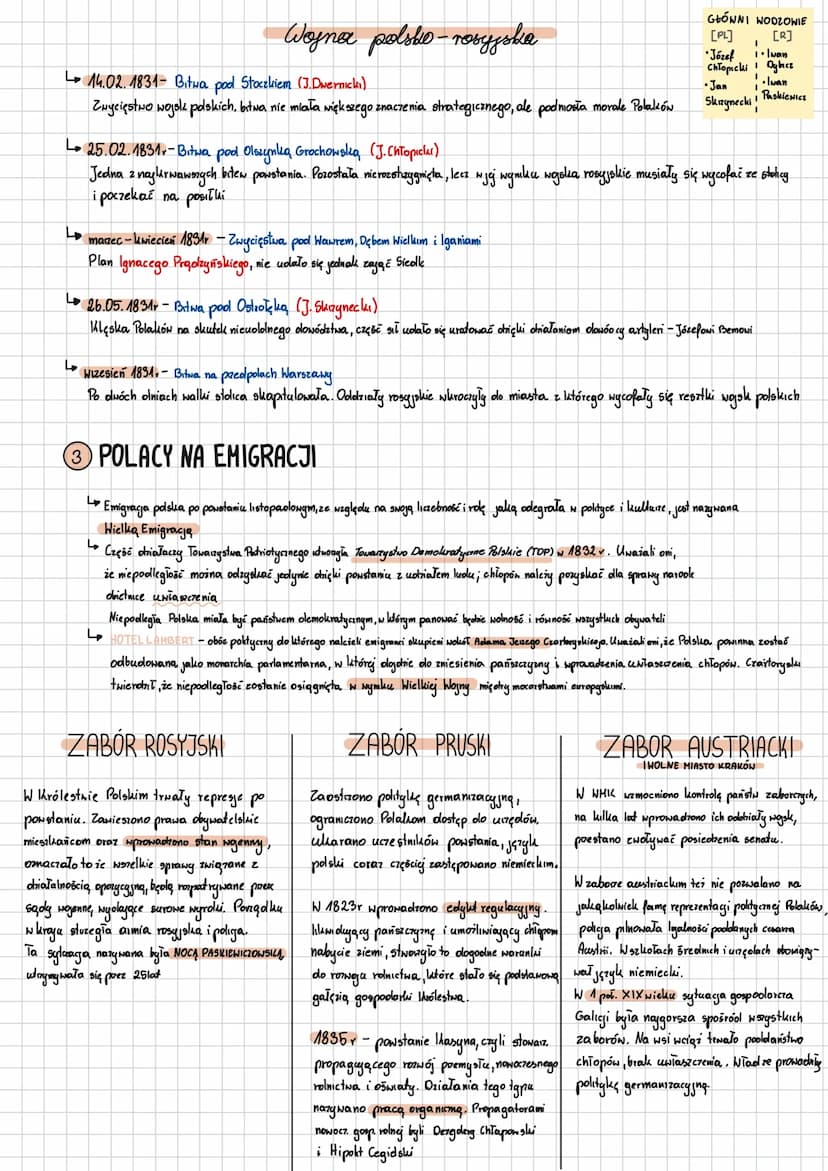 Wojna polsko-rosyjska
GŁÓWNI WODZOWIE
[PL] [R]
• Józef Chłopicki
• Jan Skrzynecki
• Iwan Dybicz
• Iwan Paskiewicz
↳ 14.02.1831 - Bitwa pod Stoczkiem (J.Dwernicki)
Zwycięstwo wojsk polskich, bitwa nie miała większego znaczenia strategicznego, ale podniosła morale Polaków
↳ 25.02.1831r - Bitwa pod Olszynką Grochowską (J.Chłopicki)
Jedna z najkrwawszych bitew powstania. Pozostała nierozstrzygnięta, lecz w jej wyniku wojska rosyjskie musiały się wycofać ze stolicy
i poczekać na posiłki
↳ marzec-kwiecień 1831r - Zwycięstwa pod Wawrem, Dębem Wielkim i Iganiami
Plan Ignacego Prądzyńskiego, nie udało się jednak zająć Siedlc
↳ 26.05.1831r - Bitwa pod Ostrołęką (J.Skrzynecki)
Klęska Polaków na skutek nieudolnego dowództwa, część sił udało się uratować dzięki działaniom dowódcy artylerii - Józefowi Bemowi
↳ wrzesień 1831r - Bitwa na przedpolach Warszawy
Po dwóch dniach walki stolica skapitulowała. Oddziały rosyjskie wkroczyły do miasta z którego wycofały się resztki wojsk polskich
3 POLACY NA EMIGRACJI
↳ Emigracja polska po powstaniu listopadowym, ze względu na swoją liczebność i rolę jaką odegrała w polityce i kulturze, jest nazywana
Wielką Emigracją
↳ Część działaczy Towarzystwa Patriotycznego utworzyła Towarzystwo Demokratyczne Polskie (TDP) w 1832r. Uważali oni,
że niepodległość można odzyskać jedynie dzięki powstaniu z udziałem ludu; chłopów należy pozyskać dla sprawy narodu
obietnicę uwłaszczenia
Niepodległa Polska miała być państwem demokratycznym, w którym panować będzie wolność i równość wszystkich obywateli
↳ HOTEL LAMBERT - obóz polityczny do którego należeli emigranci skupieni wokół Adama Jerzego Czartoryskiego. Uważali oni, że Polska powinna zostać
odbudowana jako monarchia parlamentarna, w której dojdzie do zniesienia pańszczyzny i wprowadzenia uwłaszczenia chłopów. Czartoryski
twierdził, że niepodległość zostanie osiągnięta w wyniku Wielkiej Wojny między mocarstwami europejskimi.
ZABÓR ROSYJSKI
W Królestwie Polskim trwały represje po
powstaniu. Zawieszono prawa obywatelskie
mieszkańcom oraz wprowadzono stan wojenny,
oznaczało to że wszelkie sprawy związane z
działalnością opozycyjną, będą rozpatrywane przez
sądy wojenne, wydające surowe wyroki. Porządku
w kraju strzegła armia rosyjska i policja.
Ta sytuacja nazywana była NOCĄ PASKIEWICZOWSKĄ,
utrzymywała się przez 25lat
ZABÓR PRUSKI
Zaostrzono politykę germanizacyjną,
ograniczono Polakom dostęp do urzędów,
ukarano uczestników powstania, język
polski coraz częściej zastępowano niemieckim.
W 1823r wprowadzono edykt regulacyjny.
likwidujący pańszczyznę i umożliwiający chłopom
nabycie ziemi, stworzyło to dogodne warunki
do rozwoju rolnictwa, które stało się podstawową
gałęzią gospodarki Królestwa.
1835r - powstanie Kasyna, czyli stowarz.
propagującego rozwój przemysłu, nowoczesnego
rolnictwa i oświaty. Działania tego typu
nazywano pracą organiczną. Propagatorami
nowocz. gosp. rolnej byli Dezydery Chłapowski
i Hipolit Cegidski
ZABÓR AUSTRIACKI
I WOLNE MIASTO KRAKÓW
W WMK wzmocniono kontrolę państw zaborczych,
na kilka lat wprowadzono ich oddziały wojsk,
przestano zwoływać posiedzenia senatu.
W zaborze austriackim też nie pozwalano na
jakąkolwiek formę reprezentacji politycznej Polaków,
policja pilnowała lojalności poddanych cesarza
Austrii. W szkołach średnich i urzędach obowiązy-
wał język niemiecki.
W 1 poł. XIX wieku sytuacja gospodarcza
Galicji była najgorsza spośród wszystkich
zaborów. Na wsi wciąż trwało poddaństwo
chłopów, brak uwłaszczenia. Władze prowadziły
politykę germanizacyjną.